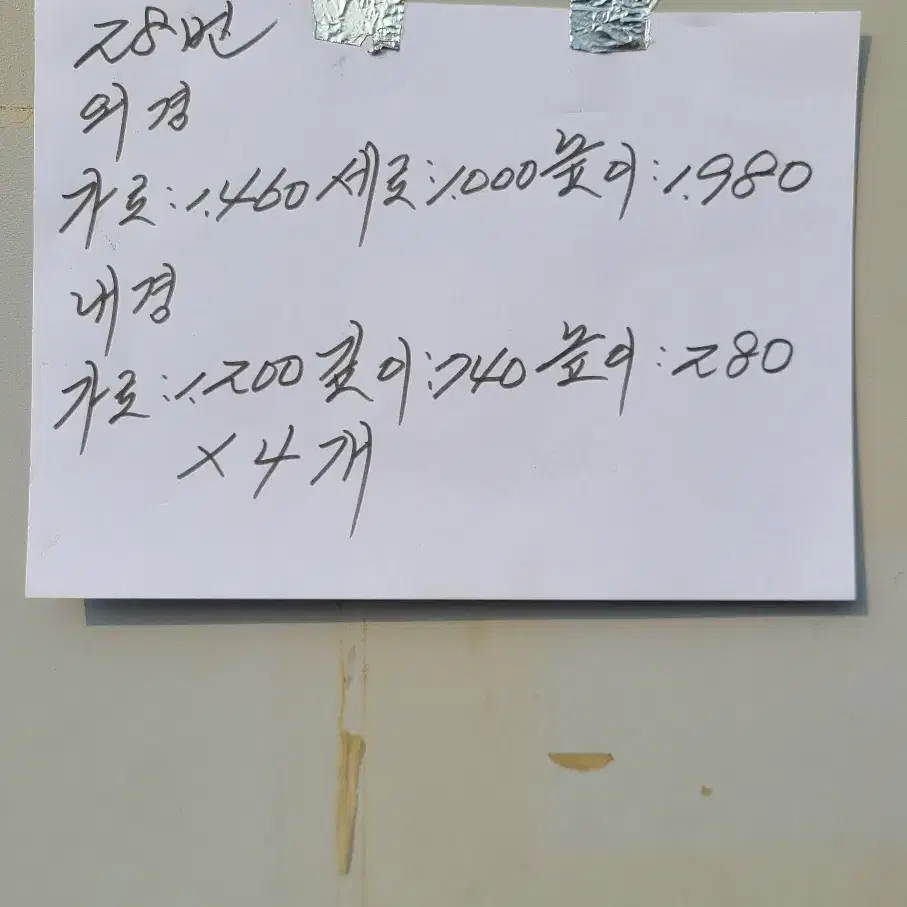 28번
외경
가로:1.460 세로:1.000 높이:1.980
내경
가로:1.200 깊이:740 높이:280
×4개